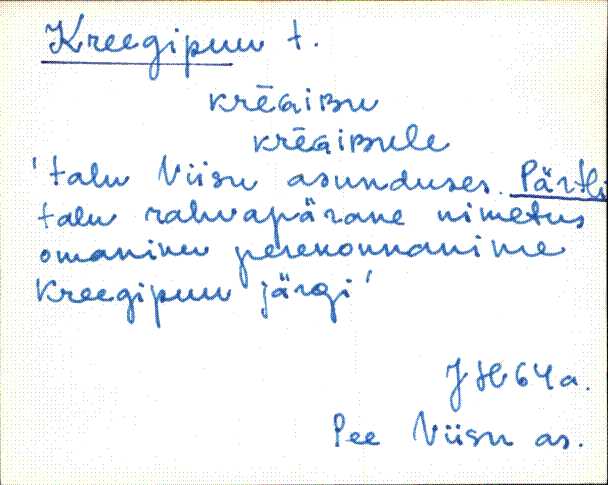 Kreegipuu t.
krēɢiʙu
krēɢiʙule
'talu Viisu asunduses. Pärtli
talu rahvapärane nimetus
omaniku perekonnanime
Kreegipuu järgi'
J H 64 a.
Pee Viisu as.